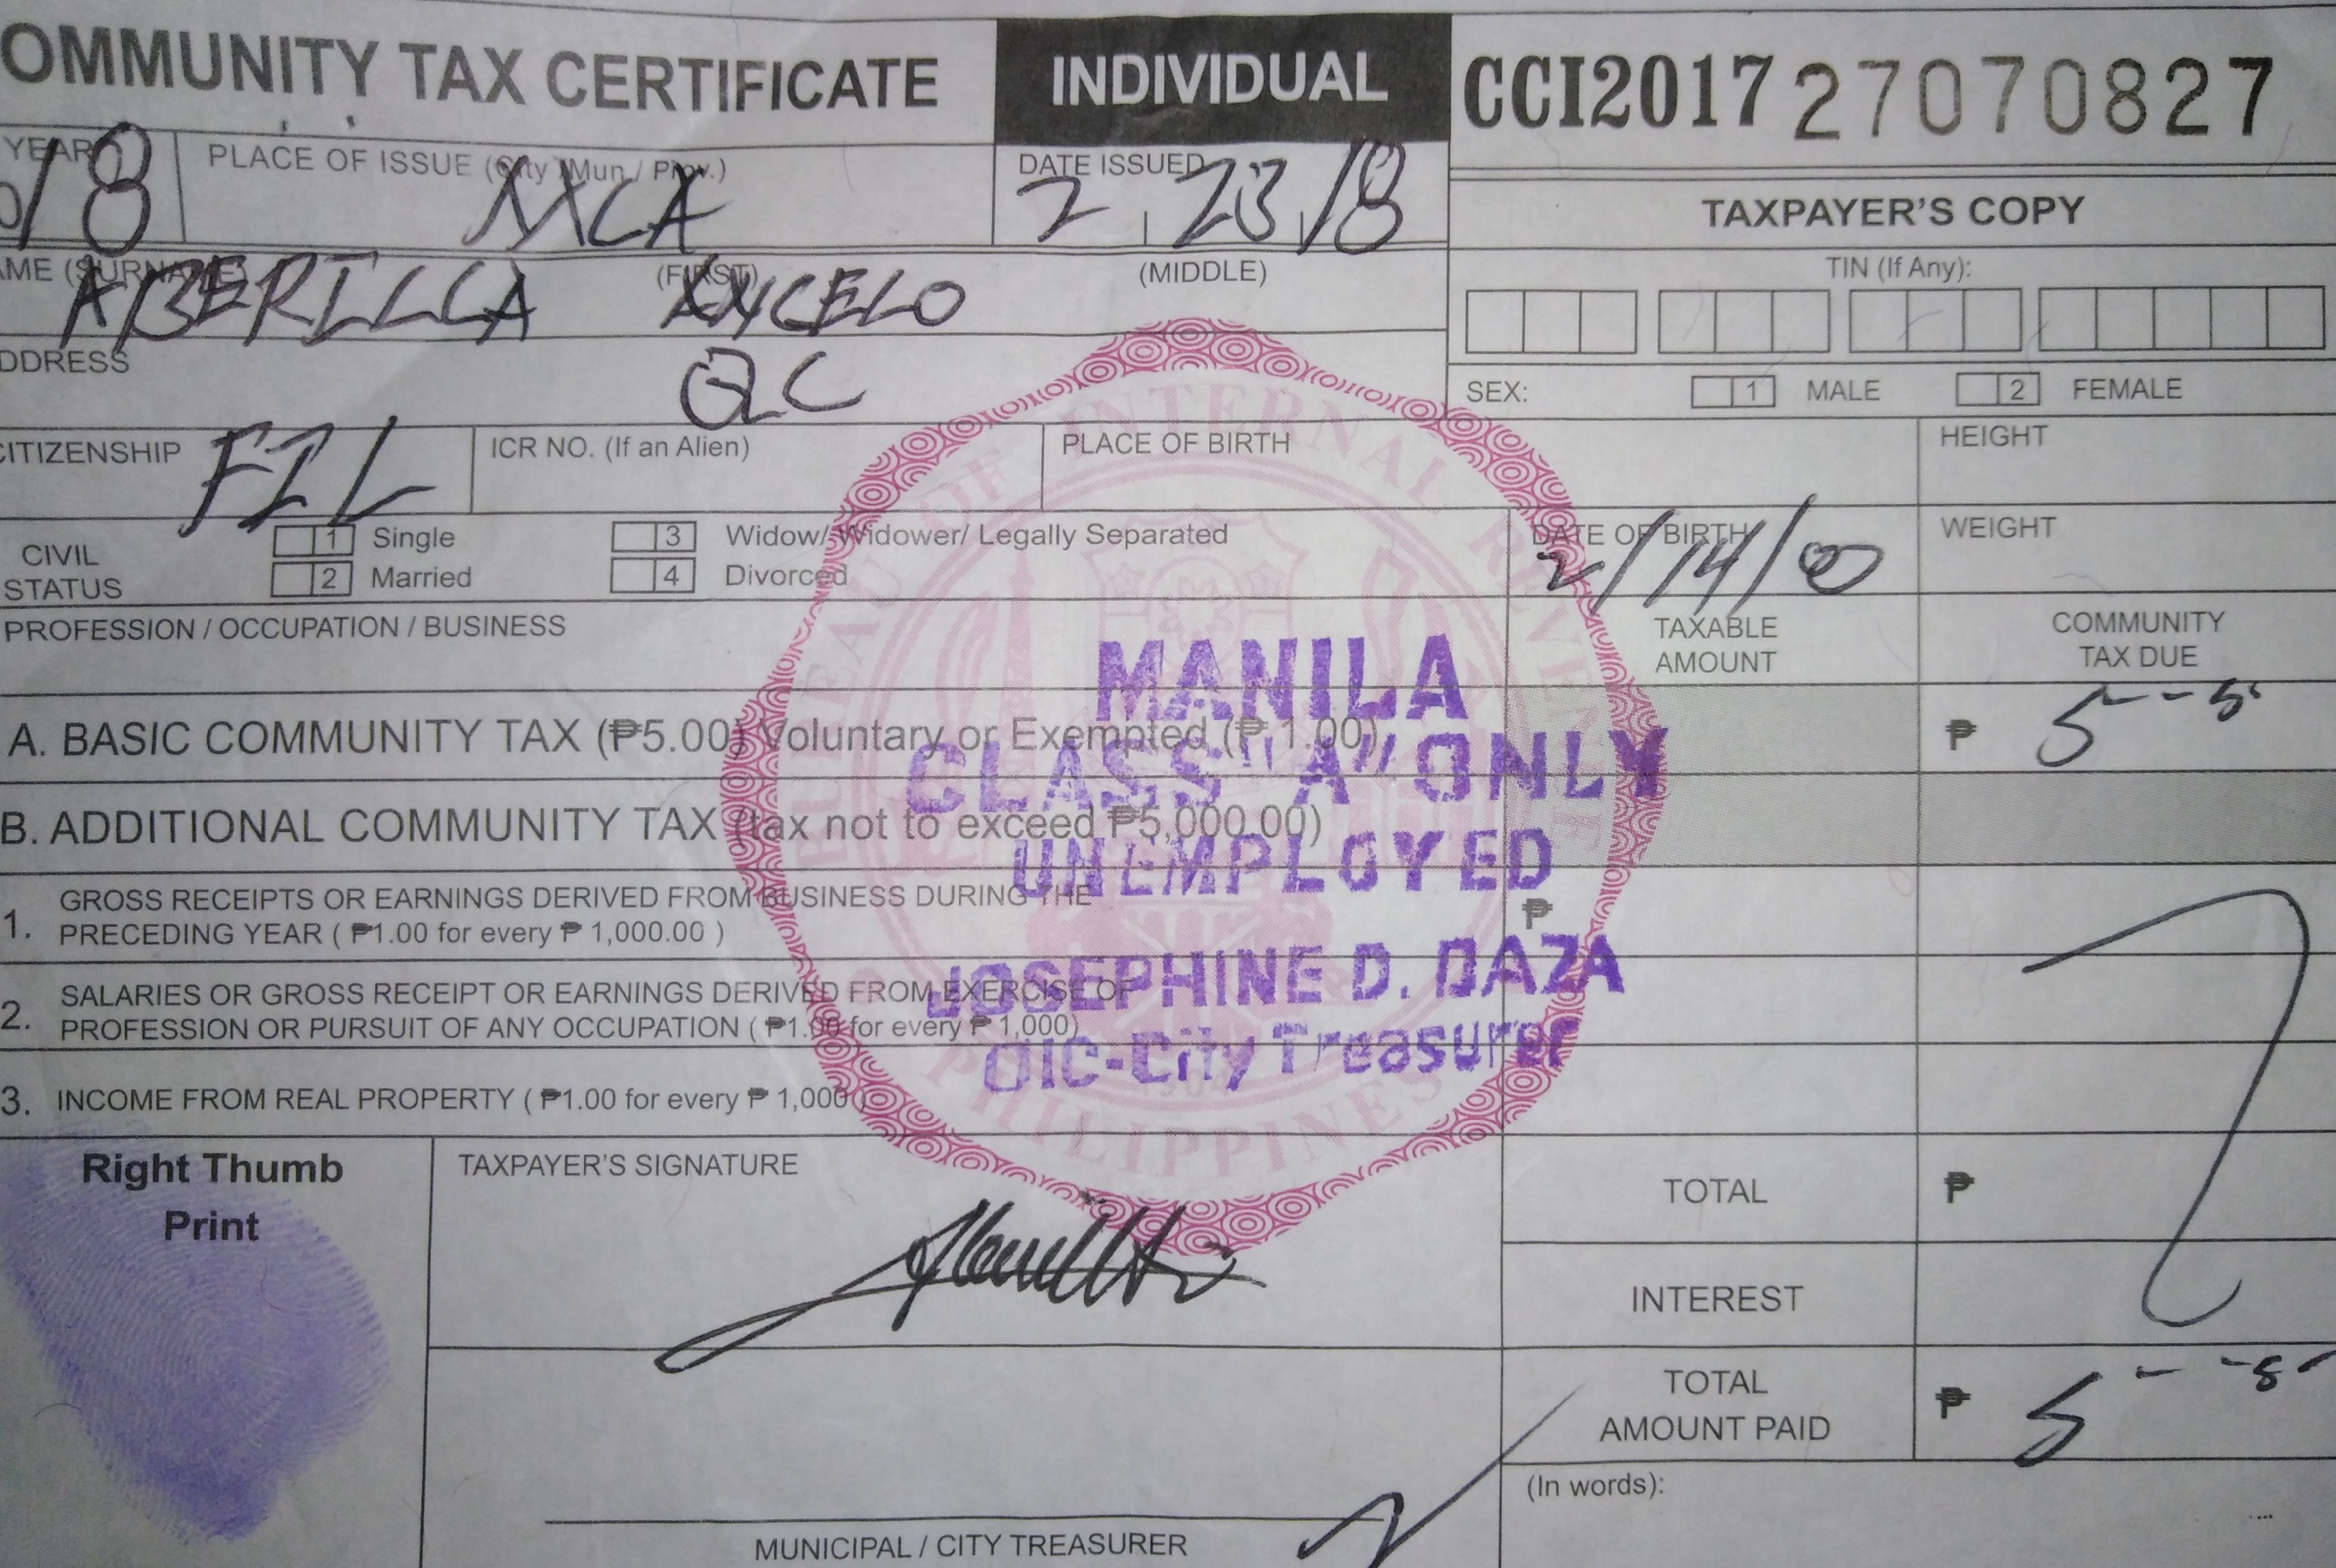 OMMUNITY TAX CERTIFICATE INDIVIDUAL CCI2017 27070827
YEAR PLACE OF ISSUE (City / Mun. / Prov.) DATE ISSUED
18 MLA 2 23 18
TAXPAYER'S COPY
AME (SURNAME) (FIRST) (MIDDLE) TIN (If Any):
ABERILLA ANGELO
DDRESS QC
SEX: 1 MALE 2 FEMALE
CITIZENSHIP FIL ICR NO. (If an Alien) PLACE OF BIRTH HEIGHT
CIVIL STATUS 1 Single 3 Widow/ Widower/ Legally Separated
2 Married 4 Divorced
DATE OF BIRTH WEIGHT
2/14/00
PROFESSION / OCCUPATION / BUSINESS TAXABLE AMOUNT COMMUNITY TAX DUE
A. BASIC COMMUNITY TAX (₱5.00) Voluntary or Exempted (₱ 1.00) ₱ 5 - - 5
B. ADDITIONAL COMMUNITY TAX (tax not to exceed ₱5,000.00)
1. GROSS RECEIPTS OR EARNINGS DERIVED FROM BUSINESS DURING THE
PRECEDING YEAR ( ₱1.00 for every ₱ 1,000.00 ) ₱
2. SALARIES OR GROSS RECEIPT OR EARNINGS DERIVED FROM EXERCISE OF
PROFESSION OR PURSUIT OF ANY OCCUPATION ( ₱1.00 for every ₱ 1,000)
3. INCOME FROM REAL PROPERTY ( ₱1.00 for every ₱ 1,000
BUREAU OF INTERNAL REVENUE
PHILIPPINES
MANILA
CLASS "A" ONLY
UNEMPLOYED
JOSEPHINE D. DAZA
OIC-City Treasurer
Right Thumb
Print
TAXPAYER'S SIGNATURE
TOTAL ₱
INTEREST
TOTAL
AMOUNT PAID ₱ 5 - - 5
(In words):
MUNICIPAL / CITY TREASURER